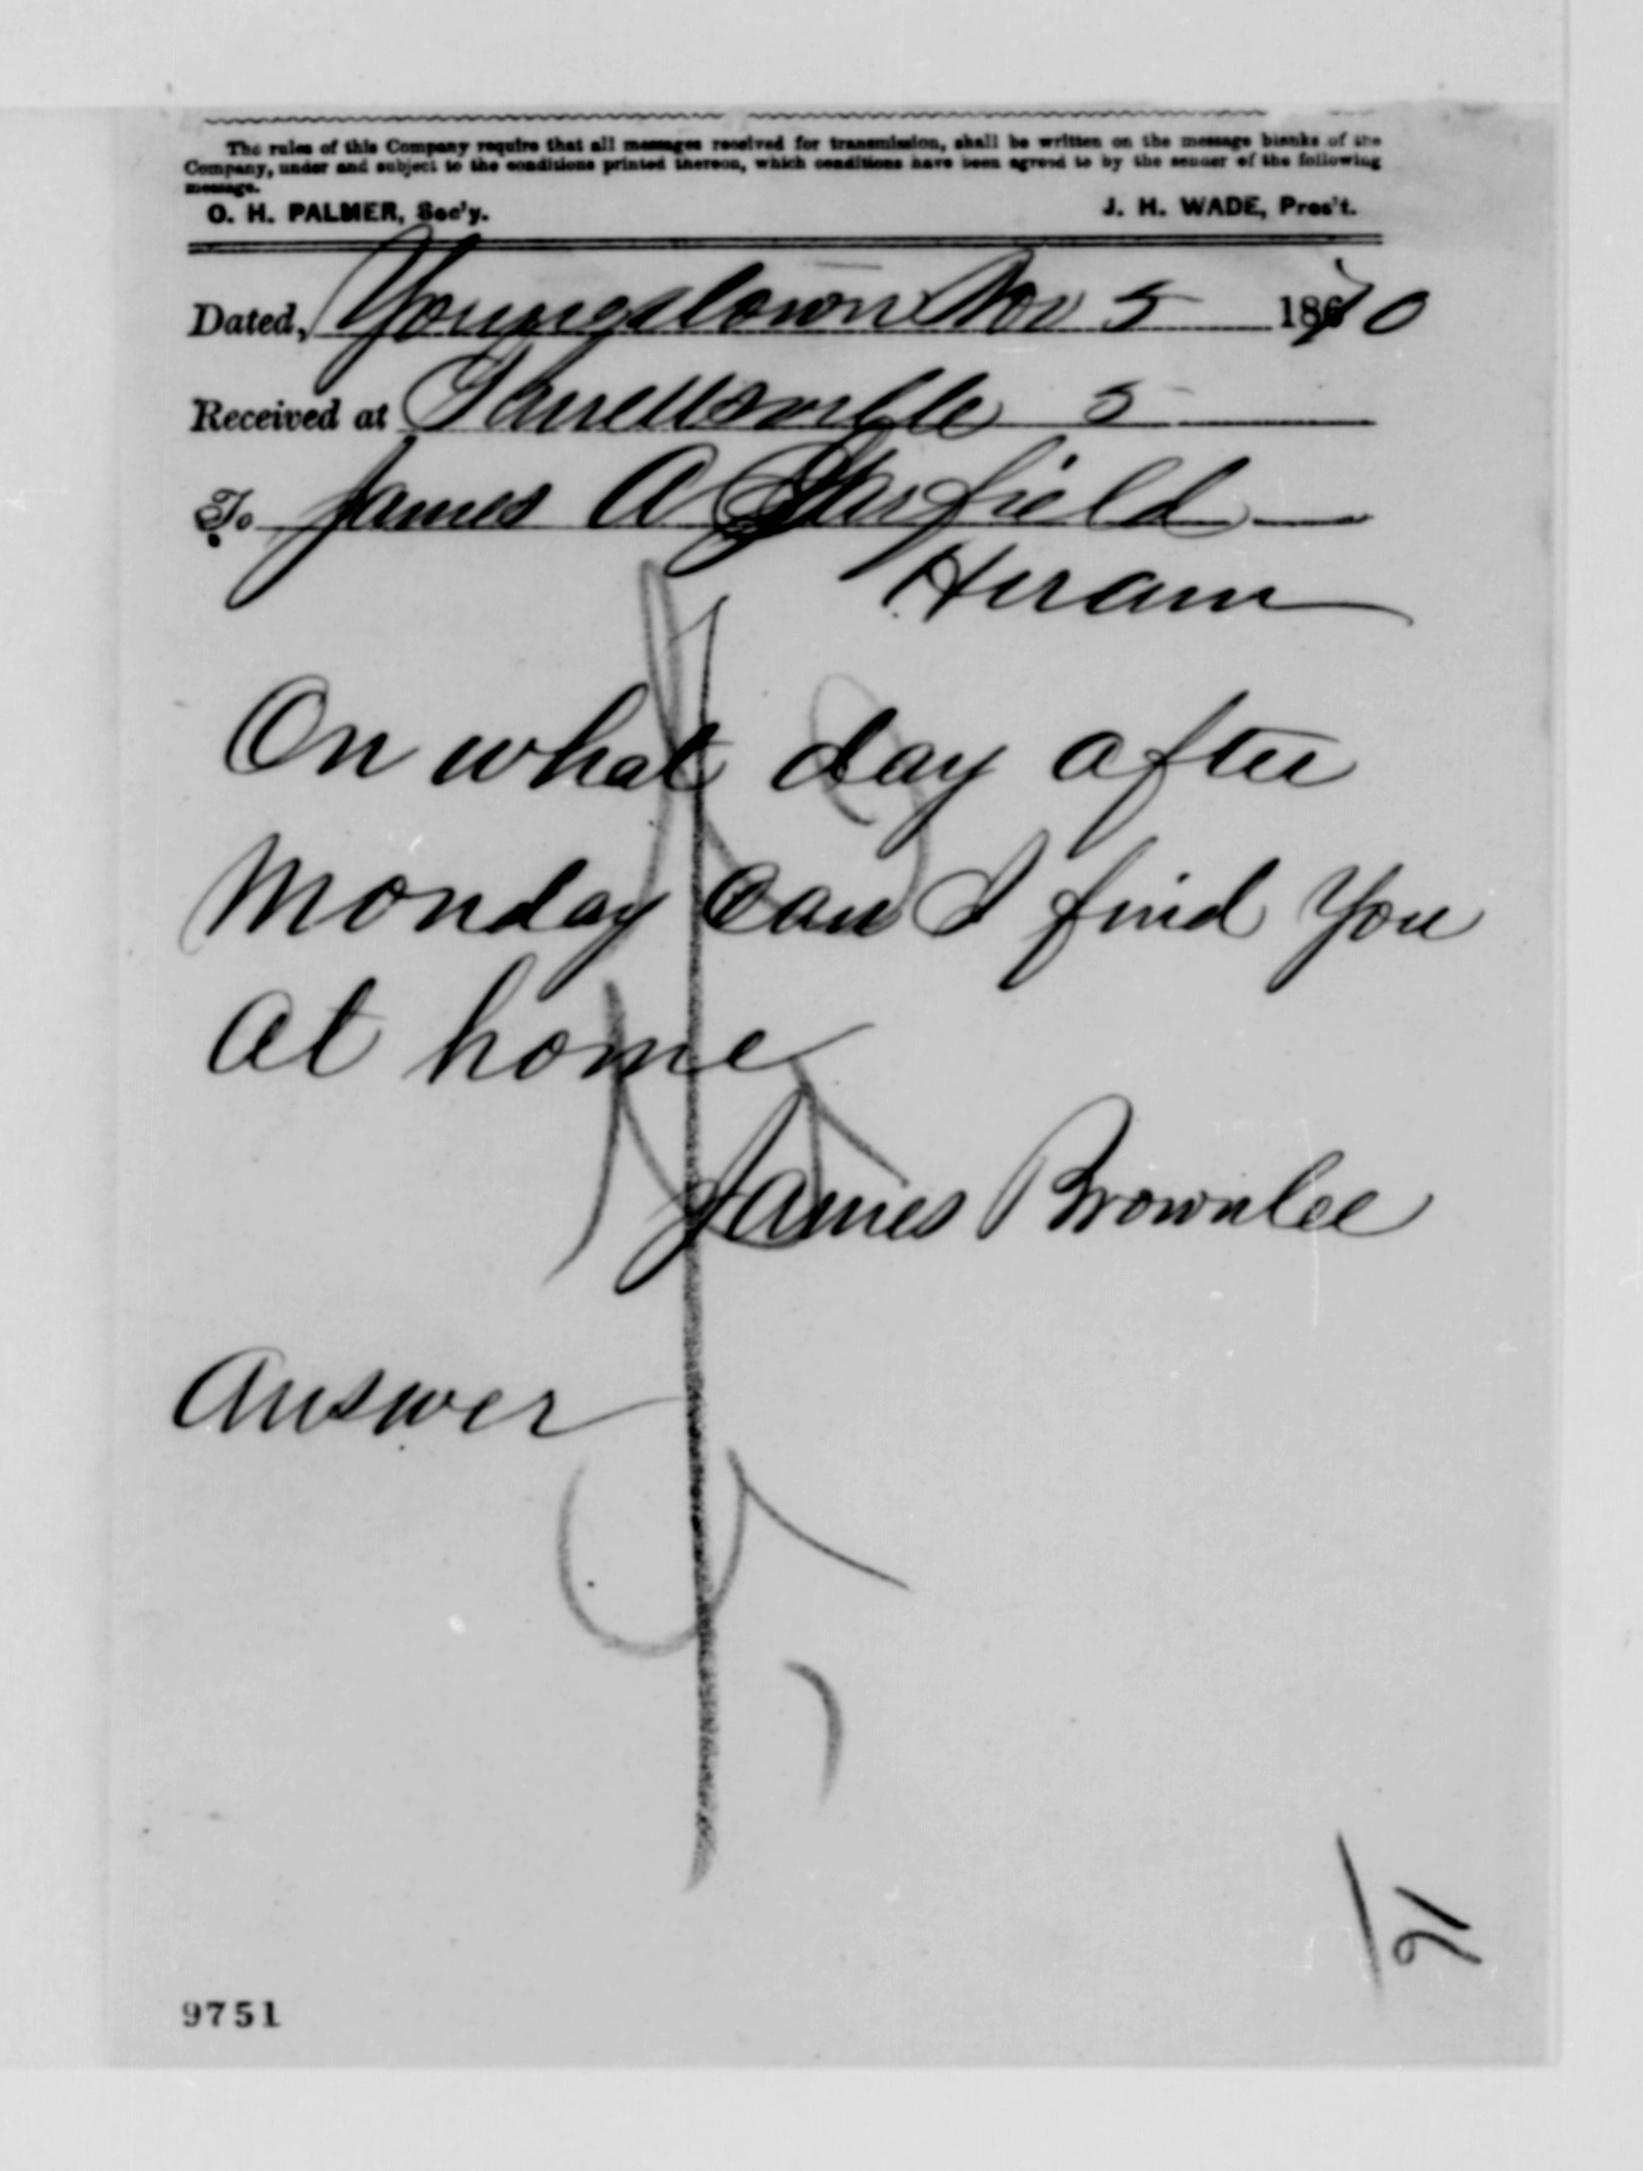 The rules of this Company require that all messages received for transmission, shall be written on the message blanks of the
Company, under and subject to the conditions printed thereon, which conditions have been agreed to by the sender of the following
message.
O. H. PALMER, Sec'y. J. H. WADE, Pres't.
Dated, Youngstown Nov 5 1870
Received at Garrettsville 5
To James A Garfield
Hiram
On what day after
Monday Can I find You
At home
James Brownlee
Answer
9751